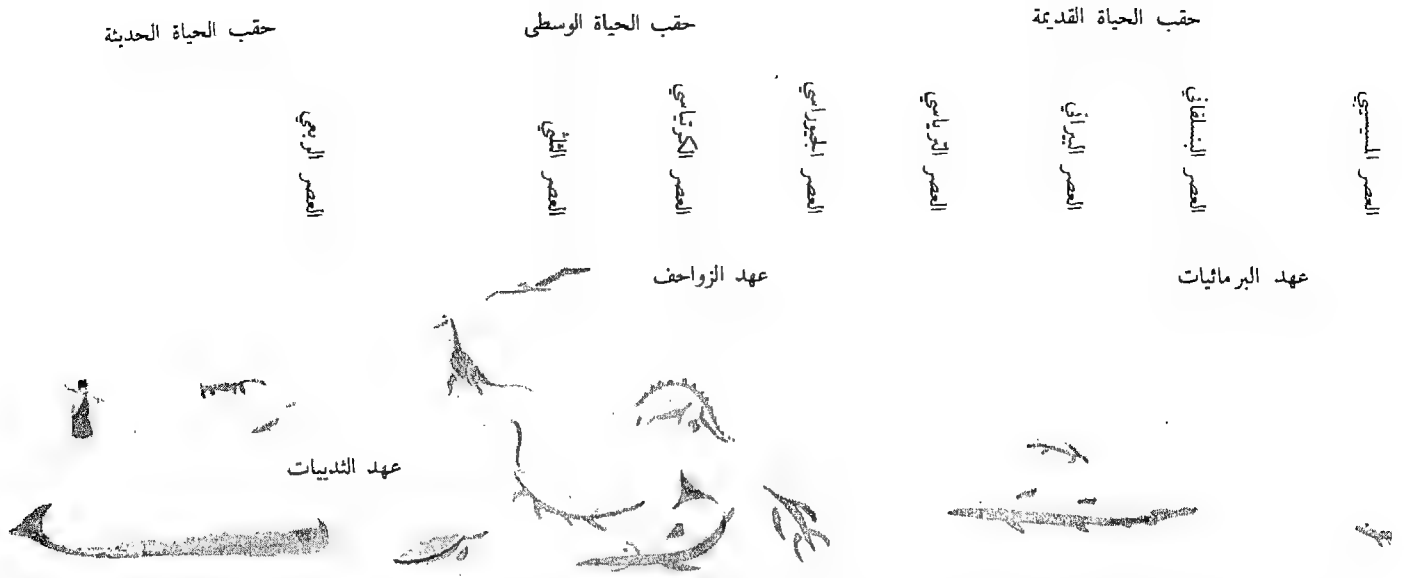 حقب الحياة القديمة
حقب الحياة الوسطى
حقب الحياة الحديثة
العصر المسيسيبي
العصر البنسلفاني
العصر البيرمي
العصر الترياسي
العصر الجيوراسي
العصر الكرتياسي
العصر الثلثي
العصر الربعي
عهد البرمائيات
عهد الزواحف
عهد الثدييات